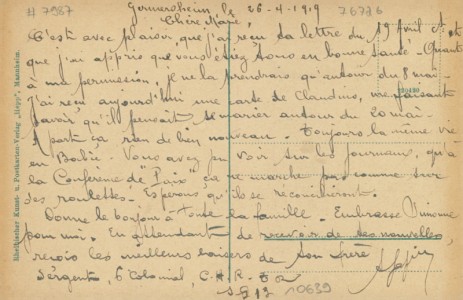 # 7987
76776
Germersheim le 26-4-1919
Chère Marie,
C'est avec plaisir que j'ai reçu ta lettre du 19 Avril et
que j'ai appris que vous étiez tous en bonne santé - Quant
à ma permission, je ne la prendrais qu'autour du 8 mai -
J'ai reçu aujourd'hui une carte de Claudius, me faisant
savoir qu'il pensait se marier autour du 20 mai -
A part ça rien de bien nouveau - Toujours la même vie
en Bochie. Vous avez pu voir sur les journaux, qu'à
la Conférence de Paix" ça ne marche pas comme sur
des roulettes. Espérons qu'ils se reconcilieront.
Donne le bonjour à toute la famille - Embrasse Simone
pour moi. En attendant de recevoir de tes nouvelles,
reçois les meilleurs baisers de ton frère
Sergent, 6 Colonial, C.H.R.
10639
Rheinischer Kunst- u. Postkarten-Verlag „Hepp", Mannheim.